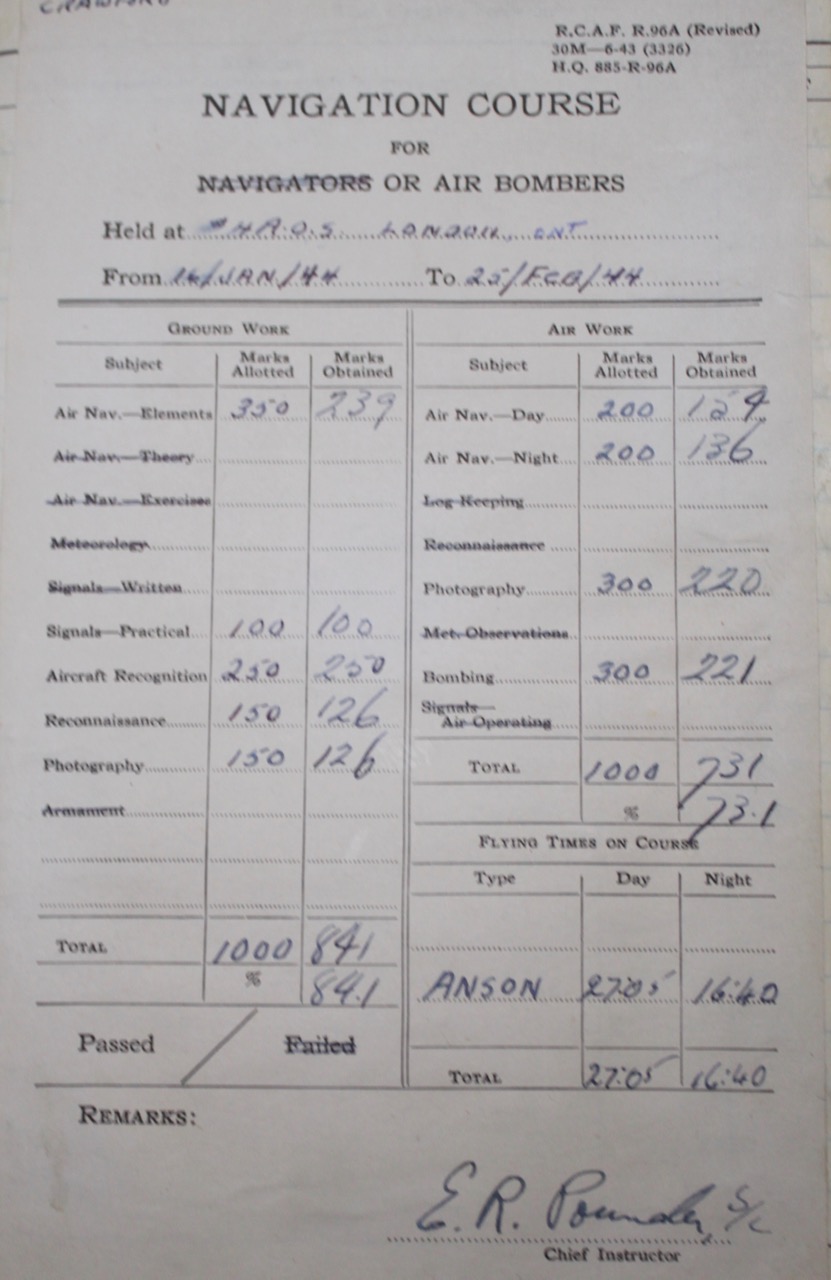 CRAWFORD
R.C.A.F. R.96A (Revised)
30M—6-43 (3326)
H.Q. 885-R-96A
NAVIGATION COURSE
FOR
NAVIGATORS OR AIR BOMBERS
Held at A.O.S. LONDON, ONT
From 16/JAN/44 To 25/FEB/44
GROUND WORK
Subject Marks Allotted Marks Obtained
Air Nav.—Elements 350 239
Air Nav.—Theory
Air Nav.—Exercises
Meteorology
Signals—Written
Signals—Practical 100 100
Aircraft Recognition 250 250
Reconnaissance 150 126
Photography 150 126
Armament
TOTAL 1000 841
% 84.1
Passed / Failed
AIR WORK
Subject Marks Allotted Marks Obtained
Air Nav.—Day 200 154
Air Nav.—Night 200 136
Log Keeping
Reconnaissance
Photography 300 220
Met. Observations
Bombing 300 221
Signals—
Air Operating
TOTAL 1000 731
% 73.1
FLYING TIMES ON COURSE
Type Day Night
ANSON 27:05 16:40
TOTAL 27:05 16:40
REMARKS:
E. R. Pounder, S/L
Chief Instructor